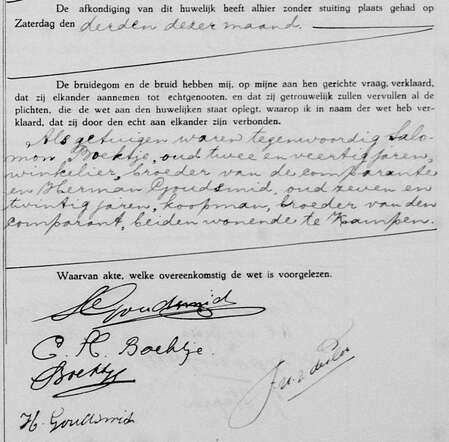 De afkondiging van dit huwelijk heeft alhier zonder stuiting plaats gehad op
Zaterdag den derden dezer maand.
De bruidegom en de bruid hebben mij, op mijne aan hen gerichte vraag, verklaard,
dat zij elkander aannemen tot echtgenooten, en dat zij getrouwelijk zullen vervullen al de
plichten, die de wet aan den huwelijken staat oplegt, waarop ik in naam der wet heb ver-
klaard, dat zij door den echt aan elkander zijn verbonden.
Als getuigen waren tegenwoordig Salo-
mon Boektje, oud twee en veertig jaren,
winkelier, broeder van de comparante
en Herman Goudsmid, oud zeven en
twintig jaren, koopman, broeder van den
comparant, beiden wonende te Kampen.
Waarvan akte, welke overeenkomstig de wet is voorgelezen.
Goudsmid
C. H. Boektje.
Boektje
H. Goudsmid